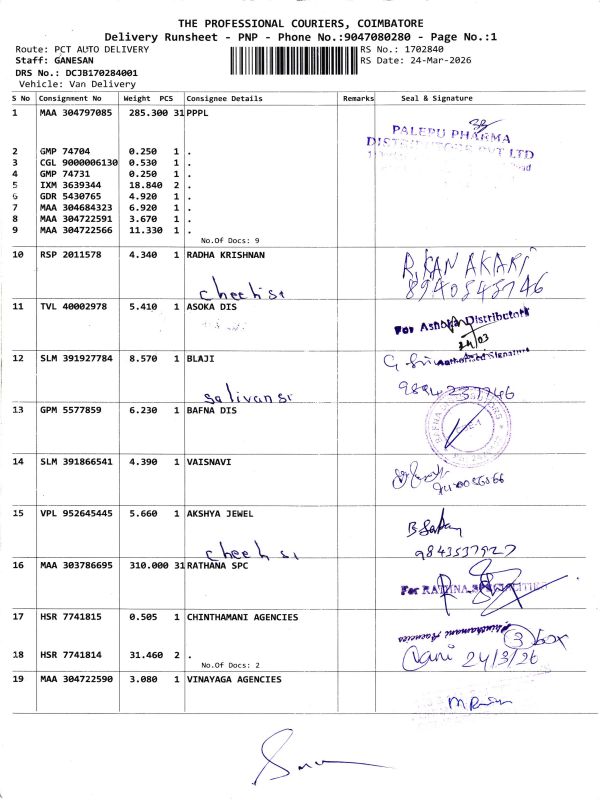 THE PROFESSIONAL COURIERS, COIMBATORE
Delivery Runsheet - PNP - Phone No.:9047080280 - Page No.:1
Route: PCT AUTO DELIVERY
RS No.: 1702840
Staff: GANESAN
RS Date: 24-Mar-2026
DRS No.: DCJB170284001
Vehicle: Van Delivery
S No Consignment No Weight PCS Consignee Details Remarks Seal & Signature
1 MAA 304797085 285.300 31 PPPL
PALEPU PHARMA
DISTRIBUTORS PVT LTD
2 GMP 74704 0.250 1 .
3 CGL 9000006130 0.530 1 .
4 GMP 74731 0.250 1 .
5 IXM 3639344 18.840 2 .
6 GDR 5430765 4.920 1 .
7 MAA 304684323 6.920 1 .
8 MAA 304722591 3.670 1 .
9 MAA 304722566 11.330 1 .
No.Of Docs: 9
10 RSP 2011578 4.340 1 RADHA KRISHNAN
8940848746
11 TVL 40002978 5.410 1 ASOKA DIS
For Ashokan Distributors
24/03
Authorised Signature
12 SLM 391927784 8.570 1 BLAJI
13 GPM 5577859 6.230 1 BAFNA DIS
14 SLM 391866541 4.390 1 VAISNAVI
15 VPL 952645445 5.660 1 AKSHYA JEWEL
9843537927
16 MAA 303786695 310.000 31 RATHANA SPC
For RATHNA SPECIALITIES
17 HSR 7741815 0.505 1 CHINTHAMANI AGENCIES
Chinthamani Agencies
3 box
18 HSR 7741814 31.460 2 .
Vani 24/3/26
No.Of Docs: 2
19 MAA 304722590 3.080 1 VINAYAGA AGENCIES